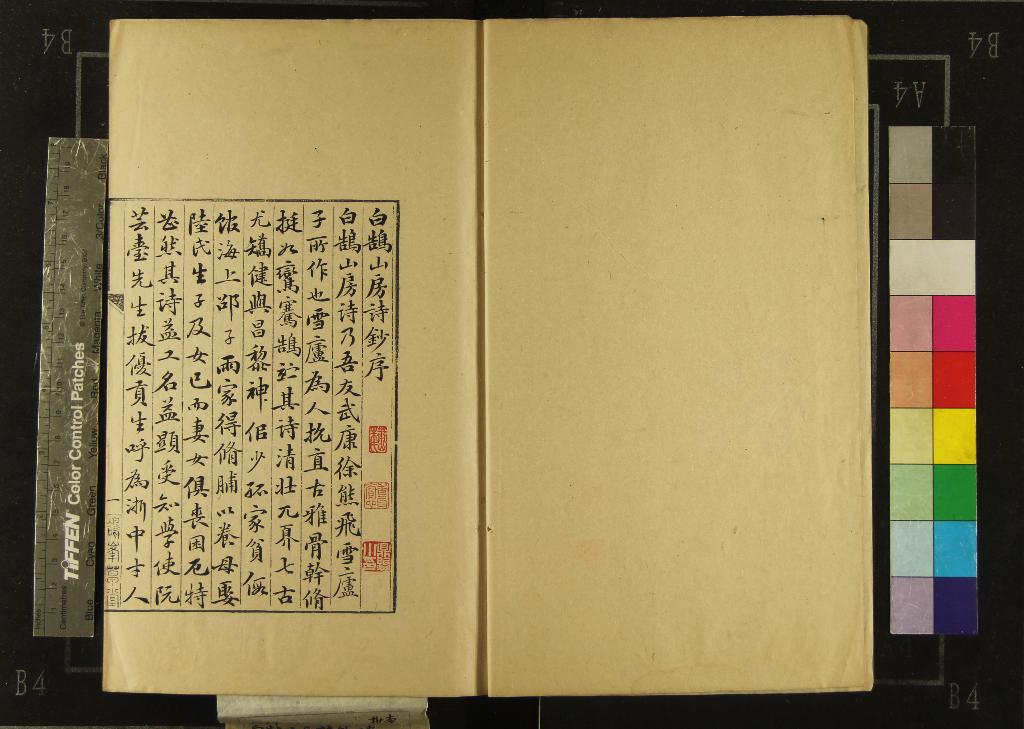 白鵠山房詩鈔序
白鵠山房詩乃吾友武康徐熊飛雪廬
子所作也雪廬為人抗直古雅骨幹脩
挺如鸞騫鵠跱其詩清壯兀奡七古
尤矯健與昌黎神侣少孤家貧假
館海上邵子兩家得脩脯以養母娶
陸氏生子及女已而妻女俱喪困厄特
甚然其詩益工名益顯受知學使阮
芸臺先生拔優貢生呼為浙中才人
一
TIFFEN Color Control Patches
Inches
Centimetres
Blue
Cyan
Green
Yellow
Red
Magenta
White
3/Color
Black
B4
B4
A4
B4
B4